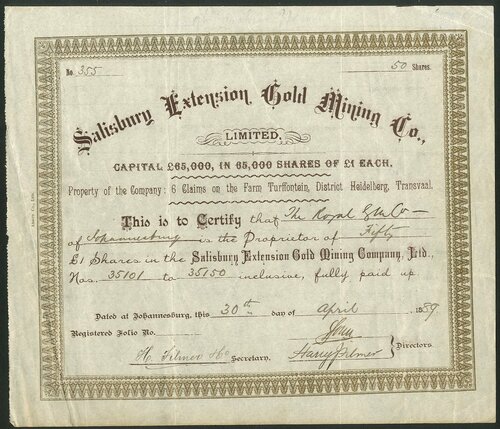 No. 355 50 Shares.
Salisbury Extension Gold Mining Co.,
LIMITED,
CAPITAL £65,000, IN 65,000 SHARES OF £1 EACH.
Property of the Company: 6 Claims on the Farm Turffontein, District Heidelberg, Transvaal.
This is to Certify that The Royal G M Co
of Johannesburg is the Proprietor of Fifty
£1 Shares in the Salisbury Extension Gold Mining Company, Ltd.,
Nos. 35101 to 35150 inclusive, fully paid up.
Dated at Johannesburg, this 30th day of April 1889.
Registered Folio No.
Directors.
Secretary.